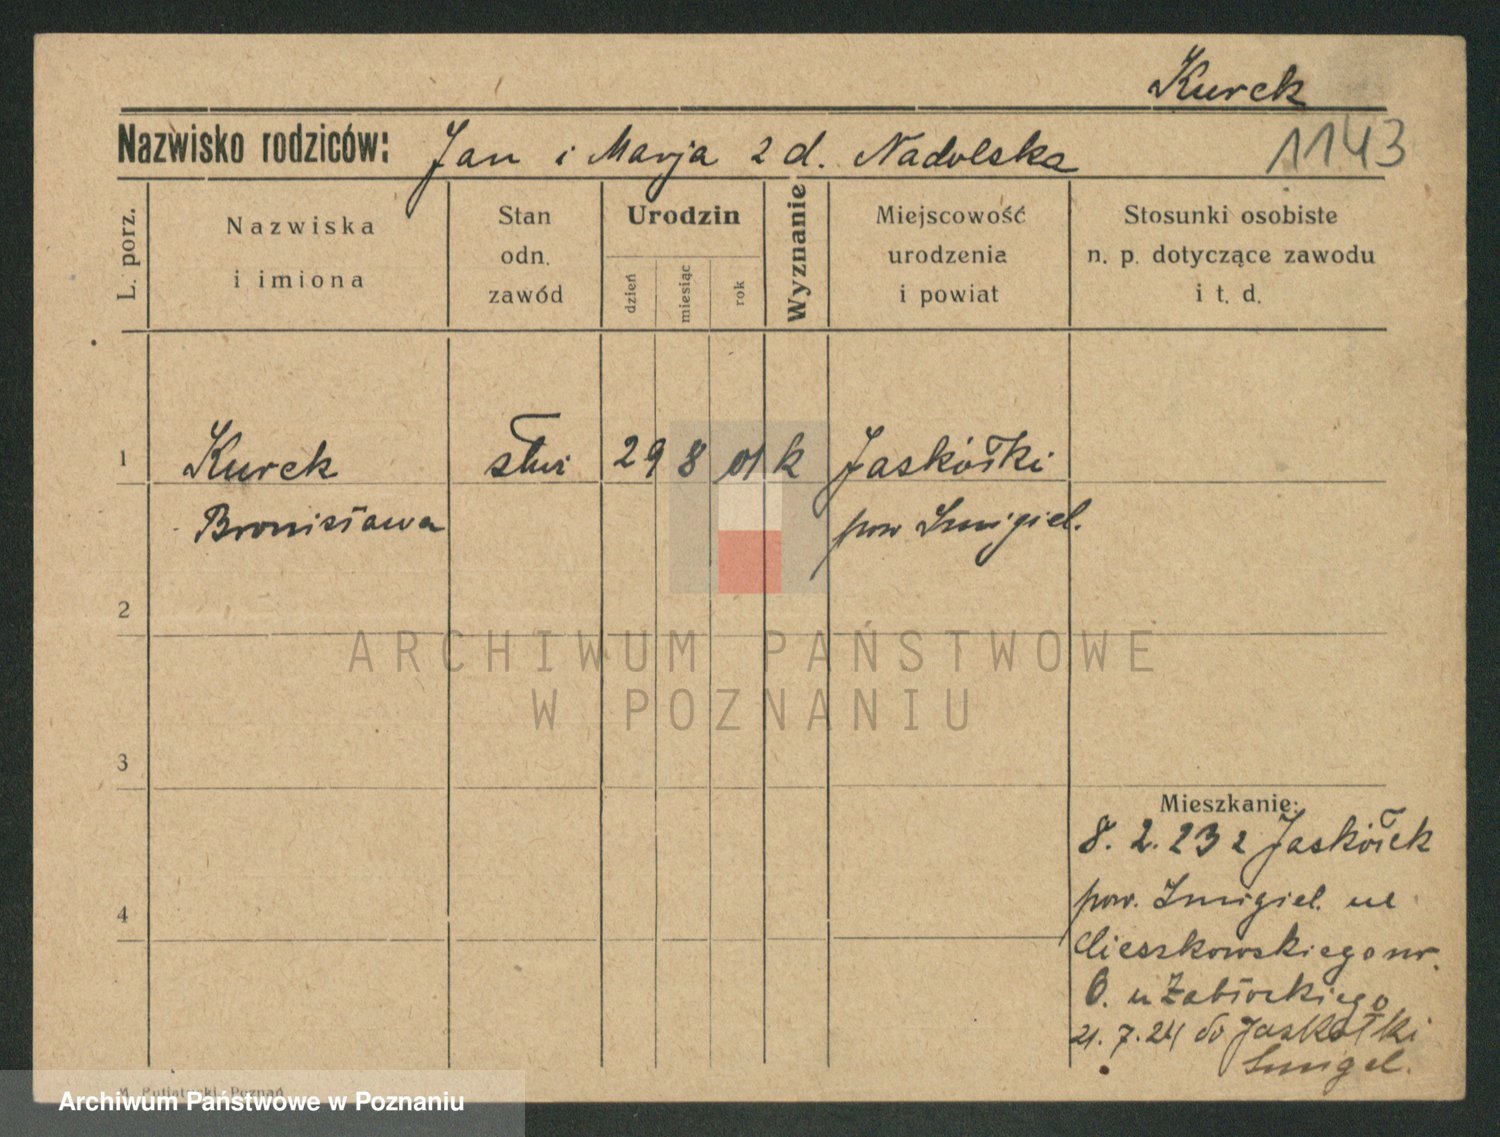 Kurek
1143
Nazwisko rodziców: Jan i Marja z d. Nadolska
L. porz.
Nazwiska
i imiona
Stan
odn.
zawód
Urodzin
dzień
miesiąc
rok
Wyznanie
Miejscowość
urodzenia
i powiat
Stosunki osobiste
n. p. dotyczące zawodu
i t. d.
1 Kurek służ 29 8 01 k Jaskółki
Bronisława pow Śmigiel.
2
3
4
Mieszkanie:
8. 2. 23 z Jaskółek
pow. Śmigiel. ul
Cieszkowskiego nr.
6. u Zabłockiego
21. 7. 24 do Jaskółki
Śmigel.
ARCHIWUM PAŃSTWOWE
W POZNANIU
Poznań
Archiwum Państwowe w Poznaniu